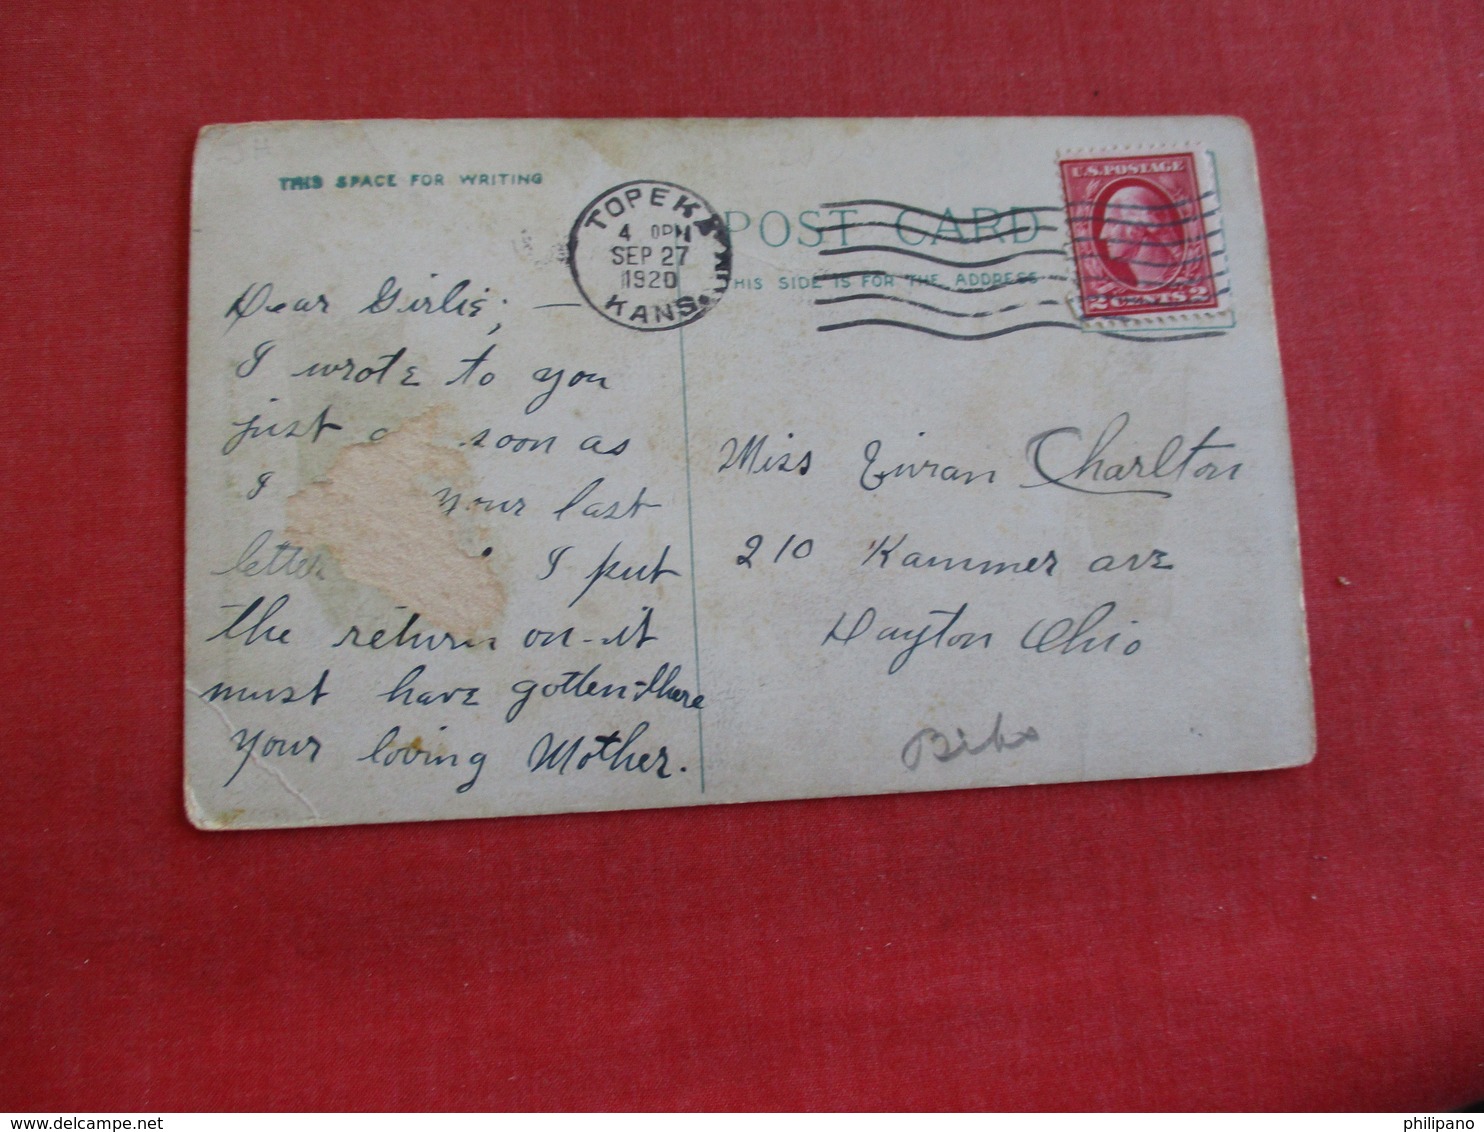 THIS SPACE FOR WRITING
TOPEKA
SEP 27
1920
KANS.
POST CARD
THIS SIDE IS FOR THE ADDRESS
U.S. POSTAGE
2 CENTS 2
Dear Girlie; —
I wrote to you
just soon as
I your last
letter I put
the return on - it
must have gotten there
Your loving Mother.
Miss Charlton
210 Kammer ave
Dayton Ohio
delcampe.net
philipano